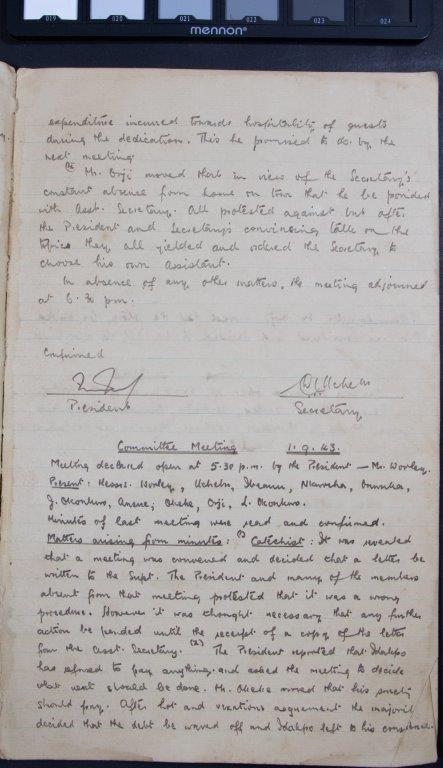 019 020 021 022 023 024
mennon
expenditure incurred towards hospitability of guests
during the dedication. This he promised to do by the
next meeting
Mr. Orji moved that in view of the Secretary's
constant absence from home on tour that he be provided
with Asst. Secretary. All protested against but after
the President and Secretary's convincing talk on the
topics they all yielded and ordered the Secretary to
choose his own Assistant.
In absence of any other matters, the meeting adjourned
at 6.30 p.m.
Confirmed
President Secretary
Committee Meeting 1.9.43.
Meeting declared open at 5.30 p.m. by the President — Mr. Worley.
Present: Messrs. Worley, Uchebo, Ibeanu, Nkwocha,
J. Okonkwo, Anene, Okeke, Orji, L. Okonkwo.
Minutes of last meeting were read and confirmed.
Matters arising from minutes: (1) Catechist: It was revealed
that a meeting was convened and decided that a letter be
written to the Supt. The President and many of the members
absent from that meeting protested that it was a wrong
procedure. However it was thought necessary that any further
action be pended until the receipt of a copy of the letter
from the Asst. Secretary. (2) The President reported that
has refused to pay anything and asked the meeting to decide
what next should be done. Mr. Okeke moved that his surety
should pay. After hot and vexatious arguement the majority
decided that the debt be waved off and left to his conscience.